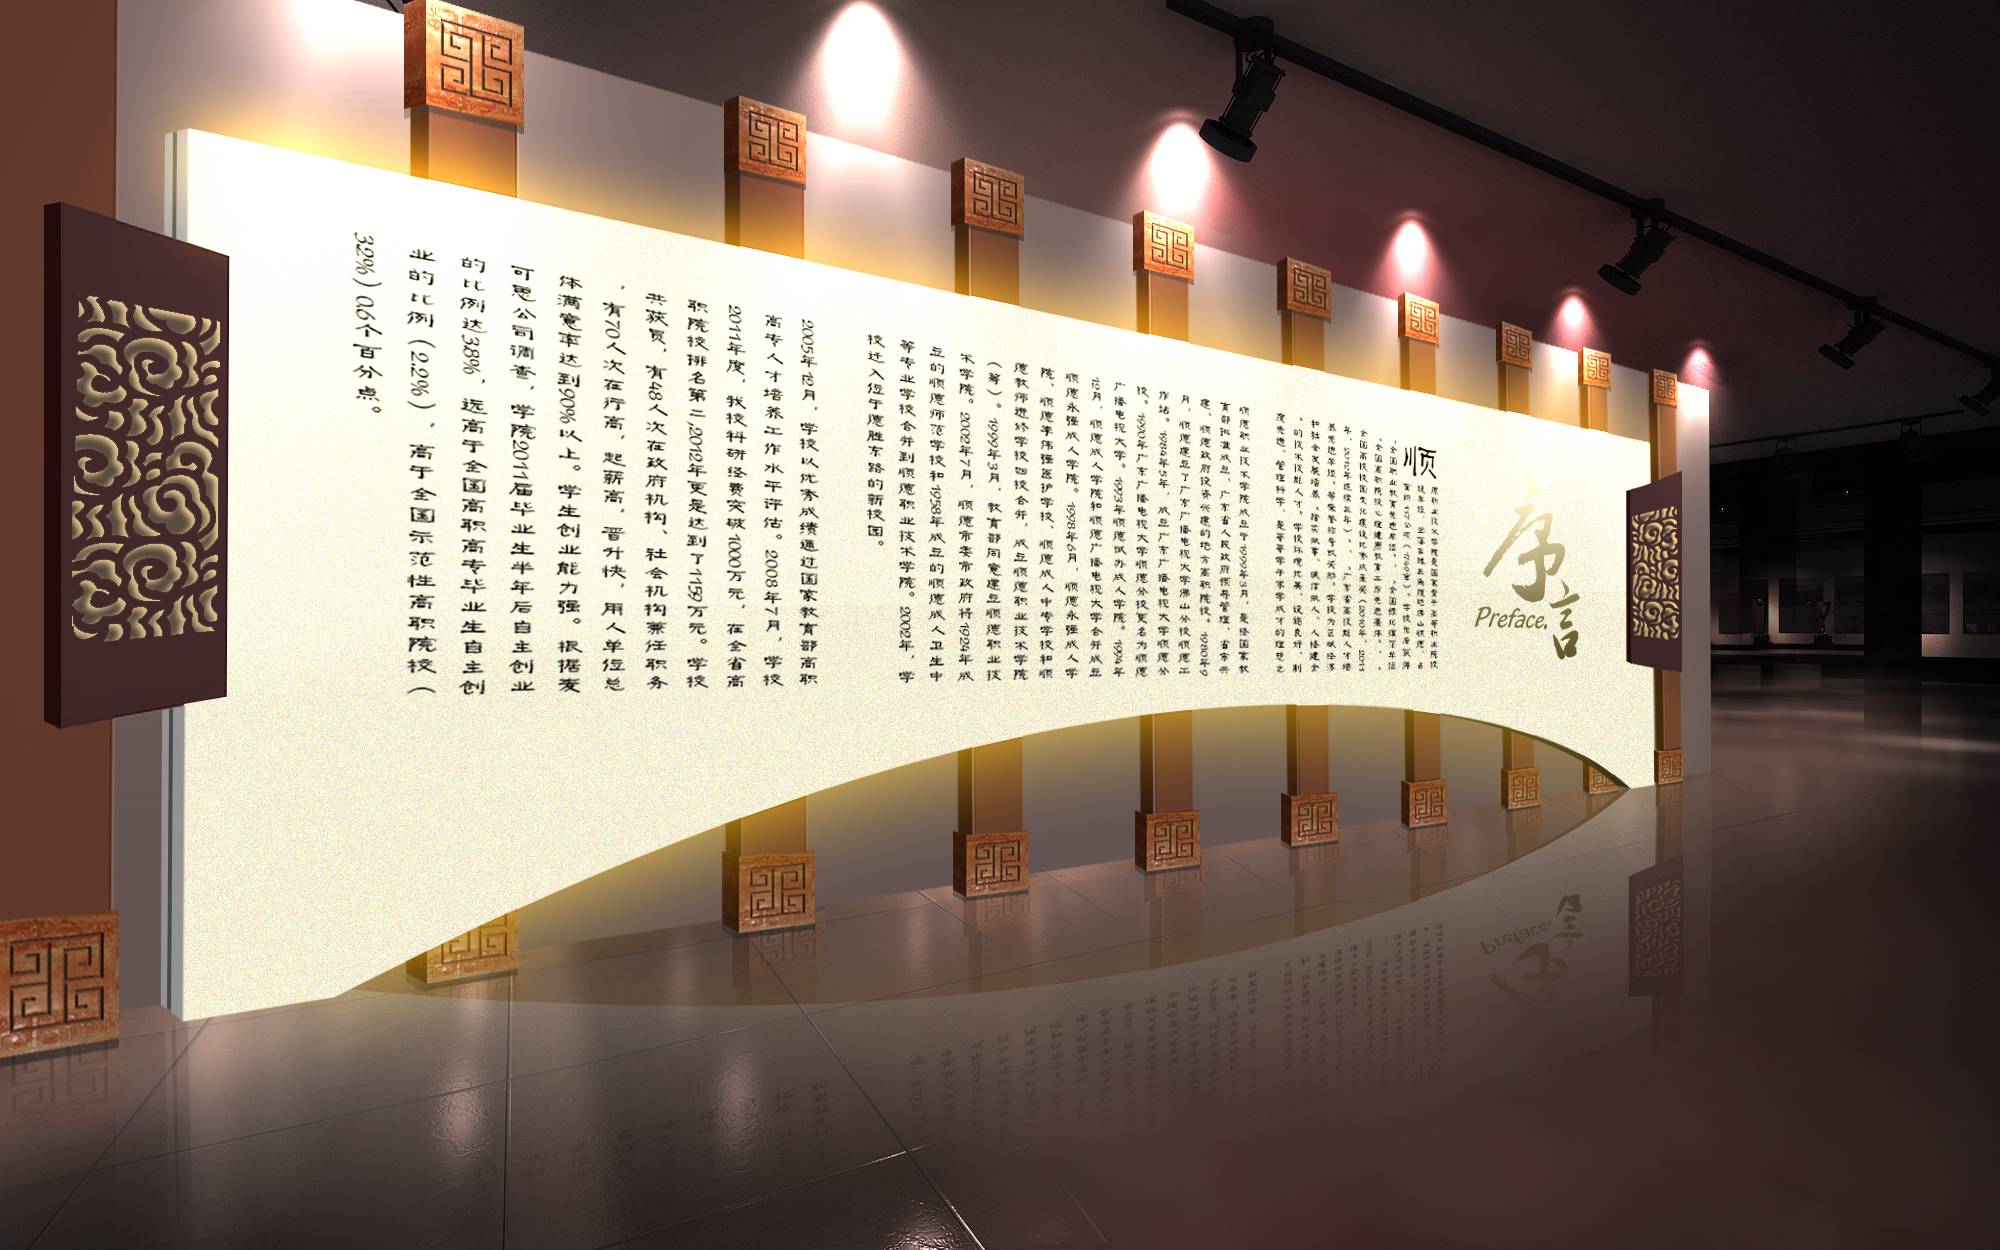 序言
Preface.
顺
德职业技术学院是国家骨干高等职业院校
的技术技能人才。学校环境优美、设施良好、制
度先进、管理科学，是莘莘学子求学成才的理想之
顺德职业技术学院成立于1999年3月，是经国家教
育部批准成立、广东省人民政府领导管理、省市共
建、顺德政府投资兴建的地方高职院校。1980年9
月，顺德建立了广东广播电视大学佛山分校顺德工
作站。1984年5年，成立广东广播电视大学顺德分
校。1990年广东广播电视大学顺德分校更名为顺德
广播电视大学。1993年顺德试办成人学院。1994年
12月，顺德成人学院和顺德广播电视大学合并成立
顺德永强成人学院。1998年6月，顺德永强成人学
院、顺德李伟强医护学校、顺德成人中专学校和顺
德教师进修学校四校合并，成立顺德职业技术学院
（筹）。1999年3月，教育部同意建立顺德职业技
术学院。2002年7月，顺德市委市政府将1924年成
立的顺德师范学校和1958年成立的顺德成人卫生中
等专业学校合并到顺德职业技术学院。2002年，学
校迁入位于德胜东路的新校园。
2005年12月，学校以优秀成绩通过国家教育部高职
高专人才培养工作水平评估。2008年7月，学校
2011年度，我校科研经费突破1000万元，在全省高
职院校排名第二,2012年更是达到了1159万元。学校
共获员，有48人次在政府机构、社会机构兼任职务
，有70人次在行高，起薪高，晋升快，用人单位总
体满意率达到90%以上。学生创业能力强。根据麦
可思公司调查，学院2011届毕业生半年后自主创业
的比例达3.8%，远高于全国高职高专毕业生自主创
业的比例（2.2%），高于全国示范性高职院校（
3.2%）0.6个百分点。